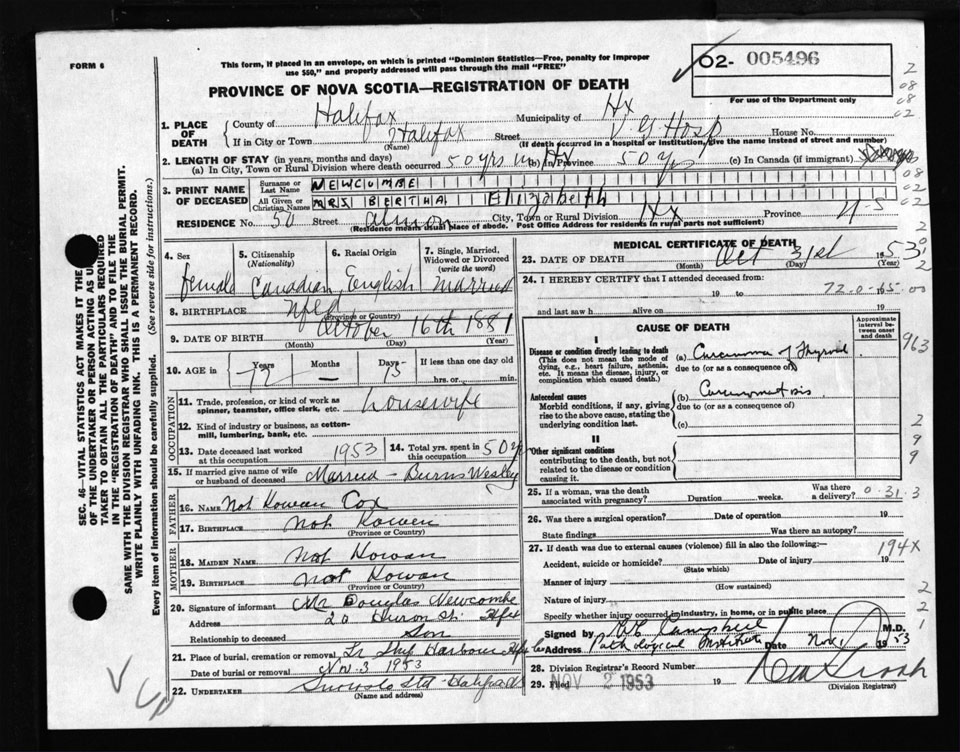 FORM 6
This form, if placed in an envelope, on which is printed "Dominion Statistics—Free, penalty for improper
use $50," and properly addressed will pass through the mail "FREE"
PROVINCE OF NOVA SCOTIA—REGISTRATION OF DEATH
02- 005496
For use of the Department only
1. PLACE OF DEATH { County of Halifax Municipality of Hx
If in City or Town Halifax Street V G Hosp House No.
(Name) (If death occurred in a hospital or institution, give the name instead of street and number)
2. LENGTH OF STAY (in years, months and days)
(a) In City, Town or Rural Division where death occurred 50 yrs In Province 50 yrs (c) In Canada (if immigrant)
3. PRINT NAME OF DECEASED { Surname or Last Name NEWCOMBE
All Given or Christian Names MRS BERTHA Elizabeth
RESIDENCE No. 50 Street Almon City, Town or Rural Division Hx Province N-S
(Residence means usual place of abode. Post Office Address for residents in rural parts not sufficient)
4. Sex female
5. Citizenship (Nationality) Canadian
6. Racial Origin English
7. Single, Married, Widowed or Divorced (write the word) married
8. BIRTHPLACE Nfld
(Province or Country)
9. DATE OF BIRTH October 16th 1881
(Month) (Day) (Year)
10. AGE in Years 72 Months — Days 15 If less than one day old
hrs. or min.
OCCUPATION
11. Trade, profession, or kind of work as spinner, teamster, office clerk, etc. housewife
12. Kind of industry or business, as cotton-mill, lumbering, bank, etc.
13. Date deceased last worked at this occupation 1953
14. Total yrs. spent in this occupation 50 yrs
15. If married give name of wife or husband of deceased Married - Burns Wesley
FATHER
16. NAME Not Kowen Cox
17. BIRTHPLACE Not Kowen
(Province or Country)
MOTHER
18. MAIDEN NAME Not Kowan
19. BIRTHPLACE Not Kowan
(Province or Country)
20. Signature of informant Mr Douglas Newcombe
Address 20 Huron St. Hfx
Relationship to deceased Son
21. Place of burial, cremation or removal Ship Harbour
Date of burial or removal Nov. 3 1953
22. UNDERTAKER Snows Ltd - Halifax
(Name and address)
MEDICAL CERTIFICATE OF DEATH
23. DATE OF DEATH Oct 31st 1953
(Month) (Day)
24. I HEREBY CERTIFY that I attended deceased from:
19 to 19
72-0-15
and last saw h alive on 19
CAUSE OF DEATH
Approximate interval between onset and death
I
Disease or condition directly leading to death (a) Carcinoma of Thyroid
(This does not mean the mode of dying, e.g., heart failure, asthenia, etc. It means the disease, injury, or complication which caused death.)
due to (or as a consequence of)
Antecedent causes (b) Carcinomatosis
Morbid conditions, if any, giving rise to the above cause, stating the underlying condition last.
due to (or as a consequence of)
(c)
II
Other significant conditions
contributing to the death, but not related to the disease or condition causing it.
25. If a woman, was the death associated with pregnancy? Duration weeks. Was there a delivery? 0-31-3
26. Was there a surgical operation? Date of operation 19
State findings Was there an autopsy?
27. If death was due to external causes (violence) fill in also the following:— 194X
Accident, suicide or homicide? Date of injury 19
(State which)
Manner of injury
(How sustained)
Nature of injury
Specify whether injury occurred in industry, in home, or in public place
Signed by Campbell M.D.
Address Pathological Institute Date Nov 1 1953
28. Division Registrar's Record Number
29. Filed NOV 2 1953 19
(Division Registrar)
SEC. 46—VITAL STATISTICS ACT MAKES IT THE
OF THE UNDERTAKER OR PERSON ACTING AS
TAKER TO OBTAIN ALL THE PARTICULARS REQUIRED
IN THE "REGISTRATION OF DEATH" AND TO FILE THE
SAME WITH THE DIVISION REGISTRAR WHO SHALL ISSUE THE BURIAL PERMIT.
WRITE PLAINLY WITH UNFADING INK. THIS IS A PERMANENT RECORD.
Every item of information should be carefully supplied. (See reverse side for instructions.)